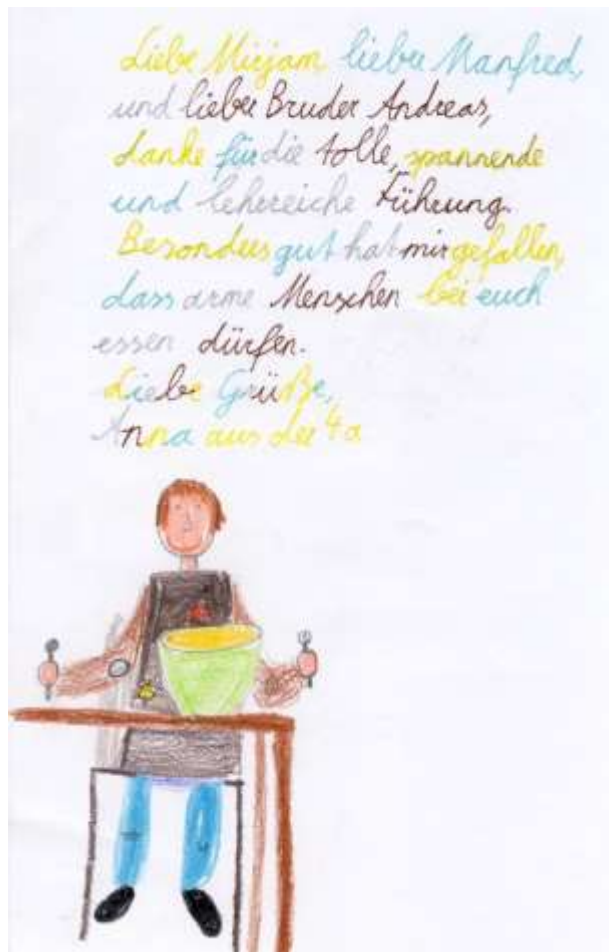 Liebe Mirjam, lieber Manfred,
und lieber Bruder Andreas,
danke für die tolle, spannende
und lehrreiche Führung.
Besonders gut hat mir gefallen,
dass arme Menschen bei euch
essen dürfen.
Liebe Grüße,
Anna aus der 4a